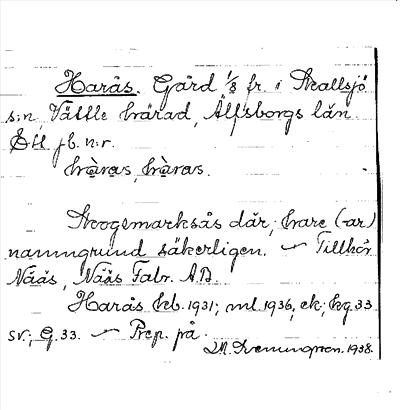 Harås. Gård 1/8 fr. i Skallsjö
s:n Vättle härad, Älfsborgs län
jb. n:r.
hàras, hàras.
Skogsmarksås där; hare (-ar)
namngrund säkerligen. — Tillhör
Nääs, Nääs Fabr. A.B.
Harås hb. 1931; ml. 1936, ek; hg. 33
sv.; G. 33. — Prep. på.
1938.